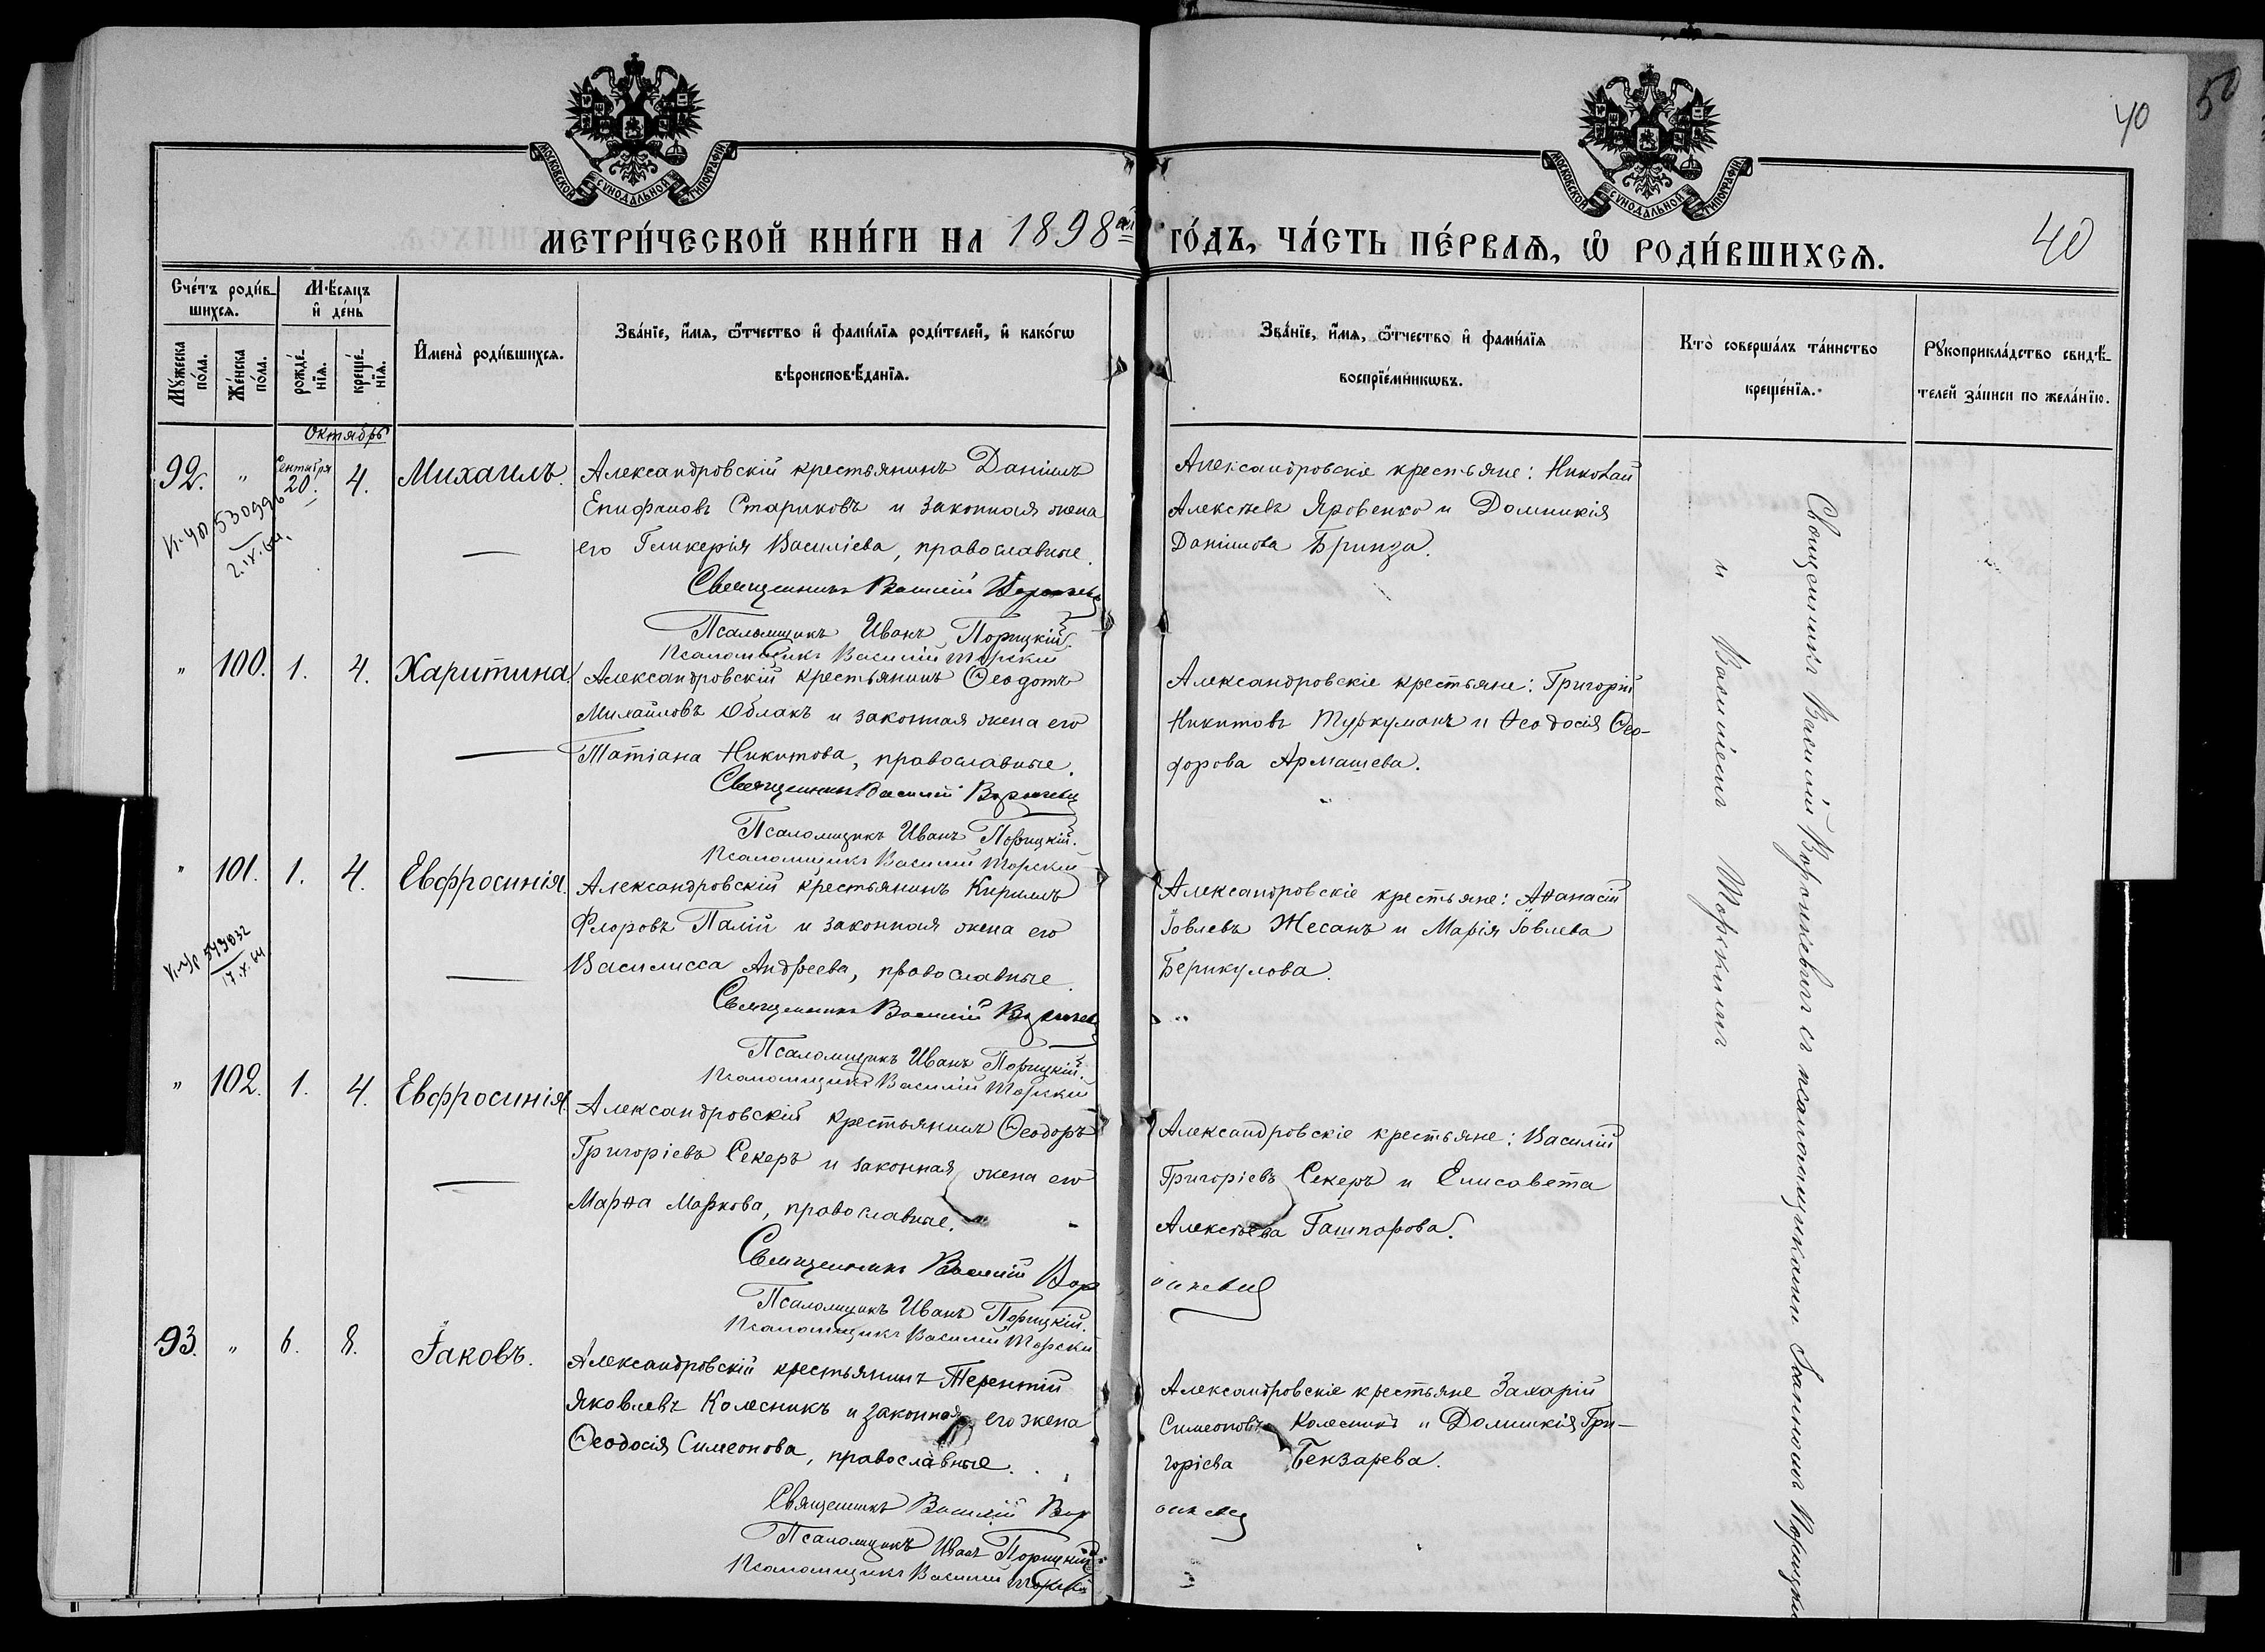 50
40
МОСКОВСКОЙ СѴНОДАЛЬНОЙ ТИПОГРАФІИ
МОСКОВСКОЙ СѴНОДАЛЬНОЙ ТИПОГРАФІИ
МЕТРИ́ЧЕСКОЙ КНИ́ГИ НА 1898 ый ГО́ДЪ, ЧА́СТЬ ПЕ́РВАѦ, Ѽ РОДИ́ВШИХСѦ.
40
Счéтъ роди́в-
шихсѧ.
Мꙋ́жеска по́ла.
Же́нска по́ла.
Мѣ́сѧцъ
и҆ де́нь
рожде́-нїѧ.
креще́-нїѧ.
И҆мена̀ роди́вшихсѧ.
Зва́нїе, и҆́мѧ, ѻ҆́тчество и҆ фами́лїѧ роди́телей, и҆ како́гѡ
вѣроисповѣ́данїѧ.
Зва́нїе, и҆́мѧ, ѻ҆́тчество и҆ фами́лїѧ
воспрїе́мникѡвъ.
Кто̀ соверша́лъ та́инство
креще́нїѧ.
Рꙋкоприкла́дство свидѣ́-
телей за́писи по жела́нїю.
Октябрь
92. " Сентября 20. 4. Михаилъ.
Александровскій крестьянинъ Даніилъ
Епифановъ Стариковъ и законная жена
его Гликерія Василіева, православные.
Священникъ Василій
Псаломщикъ Иванъ Порицкій.
Псаломщикъ Василій Торскій
Александровскіе крестьяне: Николай
Алексѣевъ Яровенко и Домникія
Даніилова Бринза.
530996
2.IX.64.
" 100. 1. 4. Харитина.
Александровскій крестьянинъ Ѳеодотъ
Михайловъ Облакъ и законная жена его
Татіана Никитова, православные.
Священникъ Василій
Псаломщикъ Иванъ Порицкій.
Псаломщикъ Василій Торскій
Александровскіе крестьяне: Григорій
Никитовъ Туркуманъ и Ѳеодосія Ѳео-
дорова Армашева.
" 101. 1. 4. Евфросинія.
Александровскій крестьянинъ Кириллъ
Флоровъ Палій и законная жена его
Василисса Андреева, православные.
Священникъ Василій
Псаломщикъ Иванъ Порицкій.
Псаломщикъ Василій Торскій
Александровскіе крестьяне: Аѳанасій
Іовлевъ Жесанъ и Марія Іовлева
Берикулова.
549032
17.X.64
" 102. 1. 4. Евфросинія.
Александровскій крестьянинъ Ѳеодоръ
Григоріевъ Секеръ и законная жена его
Марѳа Маркова, православные.
Священникъ Василій
Псаломщикъ Иванъ Порицкій.
Псаломщикъ Василій Торскій
Александровскіе крестьяне: Василій
Григоріевъ Секеръ и Елисавета
Алексѣева Гашпарова.
93. " 6. 8. Іаковъ.
Александровскій крестьянинъ Терентій
Яковлевъ Колесникъ и законная его жена
Ѳеодосія Симеонова, православные.
Священникъ Василій
Псаломщикъ Иванъ Порицкій
Псаломщикъ Василій Торскій
Александровскіе крестьяне Захарій
Симеоновъ Колесникъ и Домникія Гри-
горіева Бензарева.
Священникъ Василій Воронкевичъ съ псаломщиками Іоанномъ Порицкимъ
и Василіемъ Торскимъ